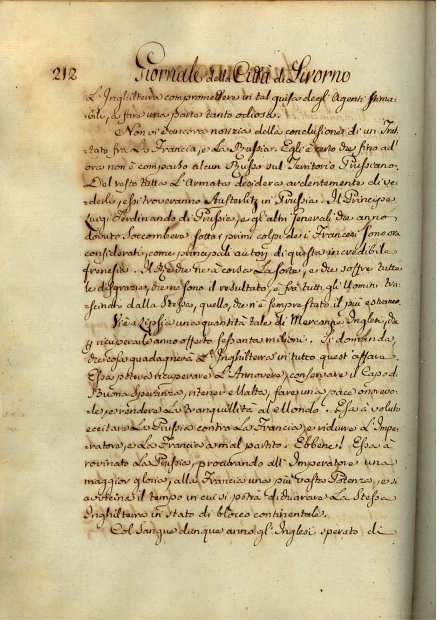 212 Giornale della Città di Livorno
L'Inghilterra compromettere in tal guisa degl'Agenti stima-
bili, e fare una parte tanto odiosa.
Non vi è ancora notizia della conclusione di un Trat-
tato fra La Francia, e La Prussia. Egli è certo che fino ad
ora non è comparso alcun Russo sul Territorio Prussiano.
Del resto tutta L'Armata desidera ardentemente di ve-
derlo, essi troveranno Austerlitz in Prussia. Il Principe
Luigi Ferdinando di Prussia, e gl'altri Generali che anno
dovuto Soccombere sotto i primi colpi dei Francesi sono ora
considerati, come principali autori di questa incredibile
frenesia. Il Re che ne à corsa La sorte, e che soffre tutte
le disgrazie, che ne sono il resultato, è frà tutti gl'Uomini tra-
scinati dalla Stessa, quello, che n'è sempre stato il più estraneo.
Vi è a Lipsia una quantità tale di Mercanzie Inglesi, che
p. ricuperarle anno offerto sessanta milioni. Si domanda,
che cosa guadagnerà L'Inghilterra in tutto quest'affare.
Essa poteva ricuperare L'Annover, conservare il Capo di
Buona Speranza, ritener Malta, fare una pace onorevo-
le, e rendere La tranquillità al Mondo. Essa à voluto
eccitare La Prussia contro La Francia, e ridurre L'Impe-
ratore, e La Francia a mal partito. Ebbene! Essa à
rovinato La Prussia, procurando all'Imperatore una
maggior gloria, alla Francia una più vasta Potenza, e si
avvicina il tempo in cui si potrà dichiarare La Stessa
Inghilterra in stato di blocco continentale.
Col Sangue dunque anno gl'Inglesi sperato di